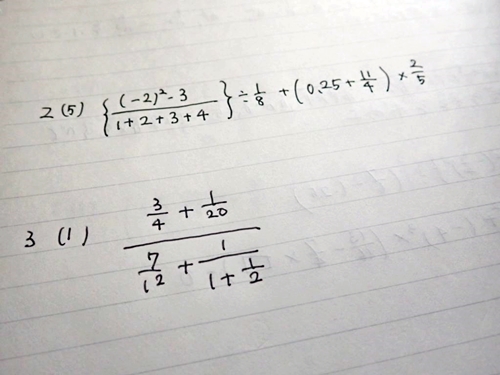 2 (5) { ((-2)² - 3) / (1 + 2 + 3 + 4) } ÷ 1/8 + (0.25 + 11/4) × 2/5
3 (1) (3/4 + 1/20) / (7/12 + 1/(1 + 1/2))